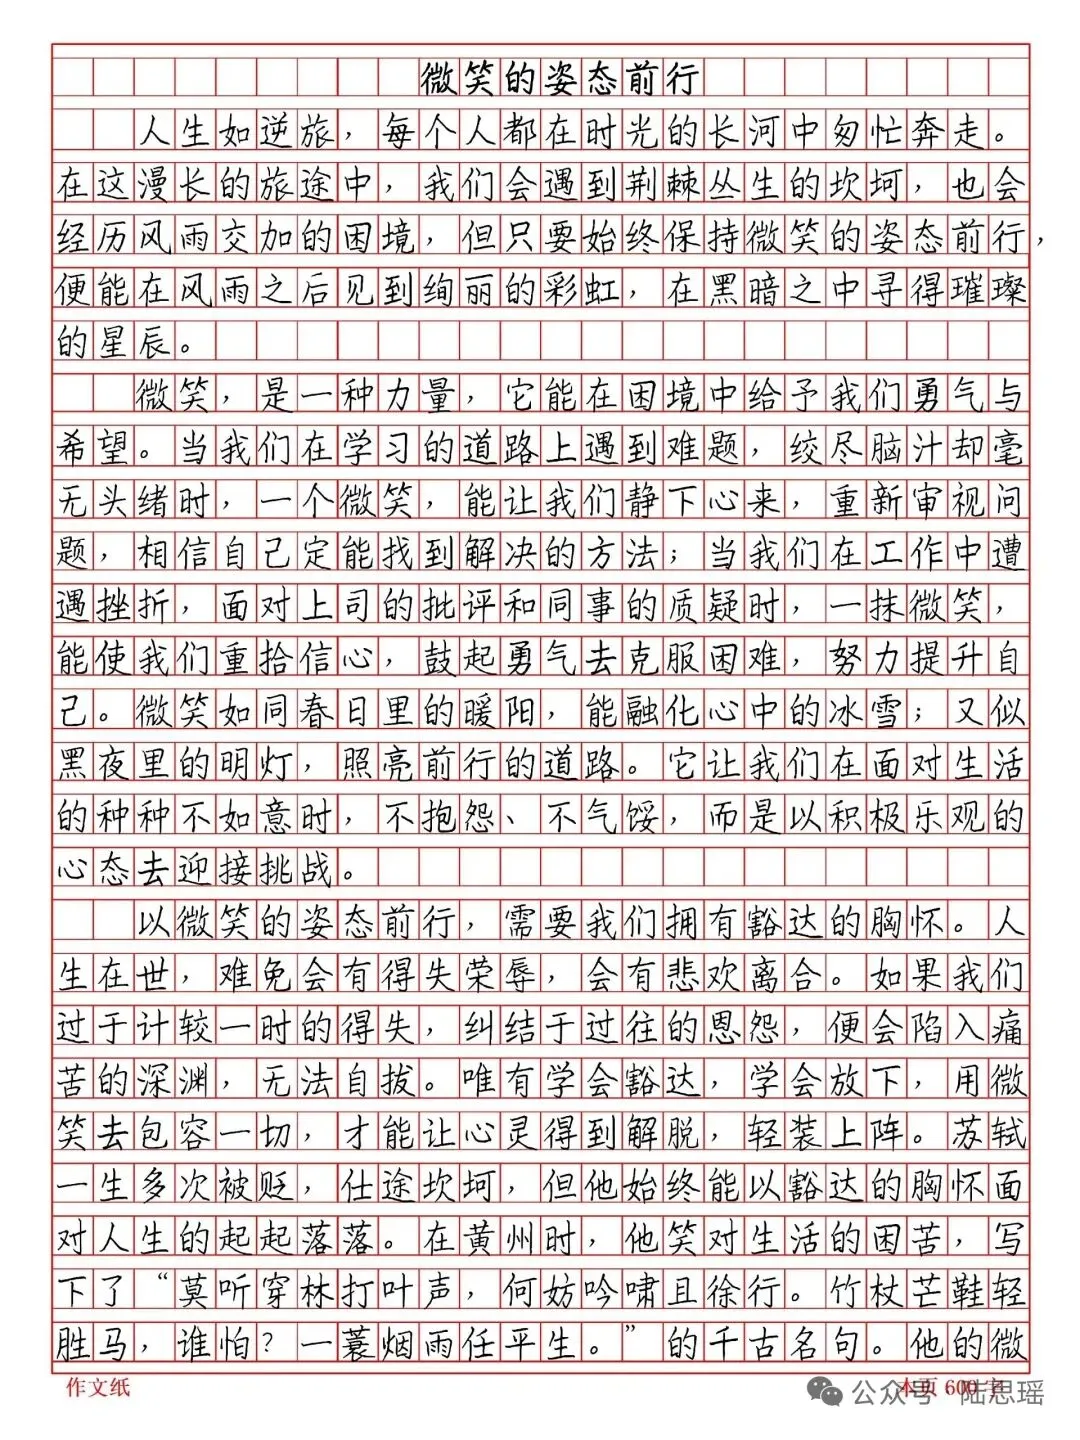 微笑的姿态前行
人生如逆旅，每个人都在时光的长河中匆忙奔走。
在这漫长的旅途中，我们会遇到荆棘丛生的坎坷，也会
经历风雨交加的困境，但只要始终保持微笑的姿态前行，
便能在风雨之后见到绚丽的彩虹，在黑暗之中寻得璀璨
的星辰。
微笑，是一种力量，它能在困境中给予我们勇气与
希望。当我们在学习的道路上遇到难题，绞尽脑汁却毫
无头绪时，一个微笑，能让我们静下心来，重新审视问
题，相信自己定能找到解决的方法；当我们在工作中遭
遇挫折，面对上司的批评和同事的质疑时，一抹微笑，
能使我们重拾信心，鼓起勇气去克服困难，努力提升自
己。微笑如同春日里的暖阳，能融化心中的冰雪；又似
黑夜里的明灯，照亮前行的道路。它让我们在面对生活
的种种不如意时，不抱怨、不气馁，而是以积极乐观的
心态去迎接挑战。
以微笑的姿态前行，需要我们拥有豁达的胸怀。人
生在世，难免会有得失荣辱，会有悲欢离合。如果我们
过于计较一时的得失，纠结于过往的恩怨，便会陷入痛
苦的深渊，无法自拔。唯有学会豁达，学会放下，用微
笑去包容一切，才能让心灵得到解脱，轻装上阵。苏轼
一生多次被贬，仕途坎坷，但他始终能以豁达的胸怀面
对人生的起起落落。在黄州时，他笑对生活的困苦，写
下了“莫听穿林打叶声，何妨吟啸且徐行。竹杖芒鞋轻
胜马，谁怕？一蓑烟雨任平生。”的千古名句。他的微
作文纸 本页 600 字
公众号·陆思瑶